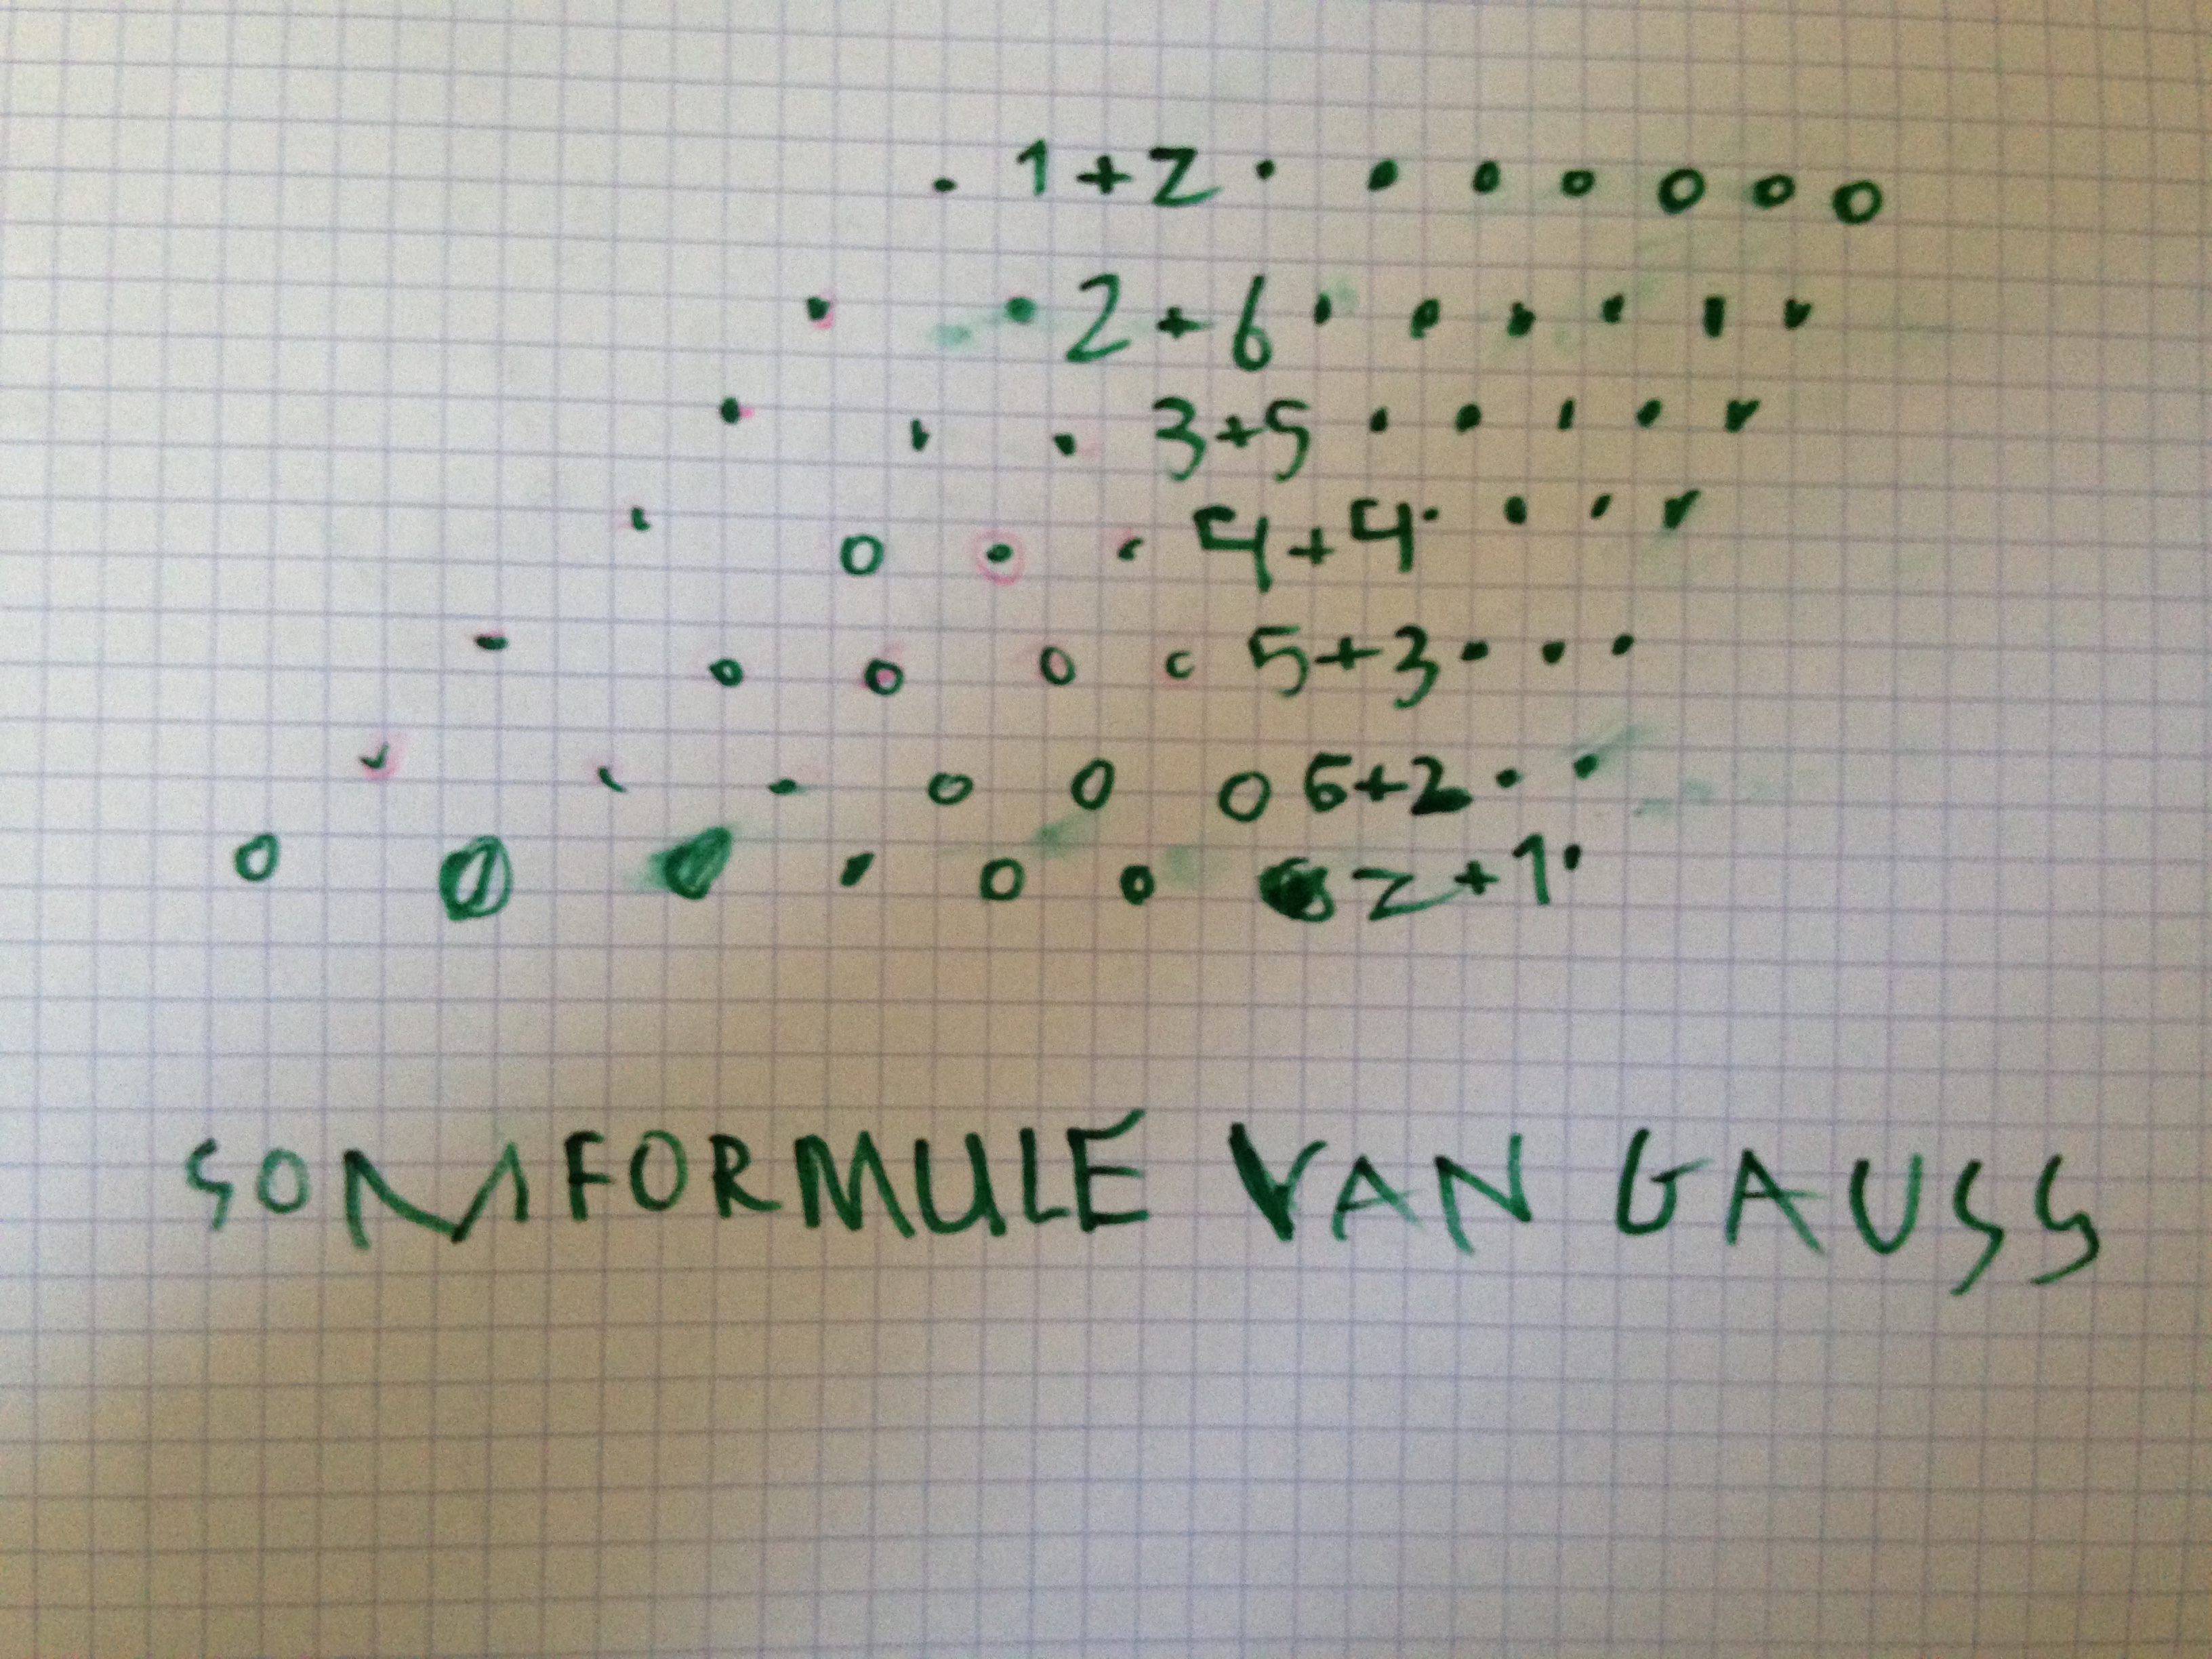 1+7
2+6
3+5
4+4
5+3
6+2
7+1
SOMFORMULE VAN GAUSS